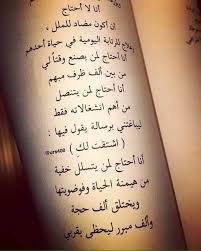 أنا لا أحتاج
إن أكون مضاد للملل ،
وعلاج للرتابة اليومية في حياة أحدهم
أنا أحتاج لمن يصنع وقتاً لي
من بين ألف ظرف مبهم
أنا أحتاج لمن يتنصل
من أهم انشغالاته فقط
ليباغتني برسالة يقول فيها :
( اشتقت لك )
أنا أحتاج لمن يتسلل خفية
من هيمنة الحياة وفوضويتها
ويختلق ألف حجة
وألف مبرر ليحظى بقربي